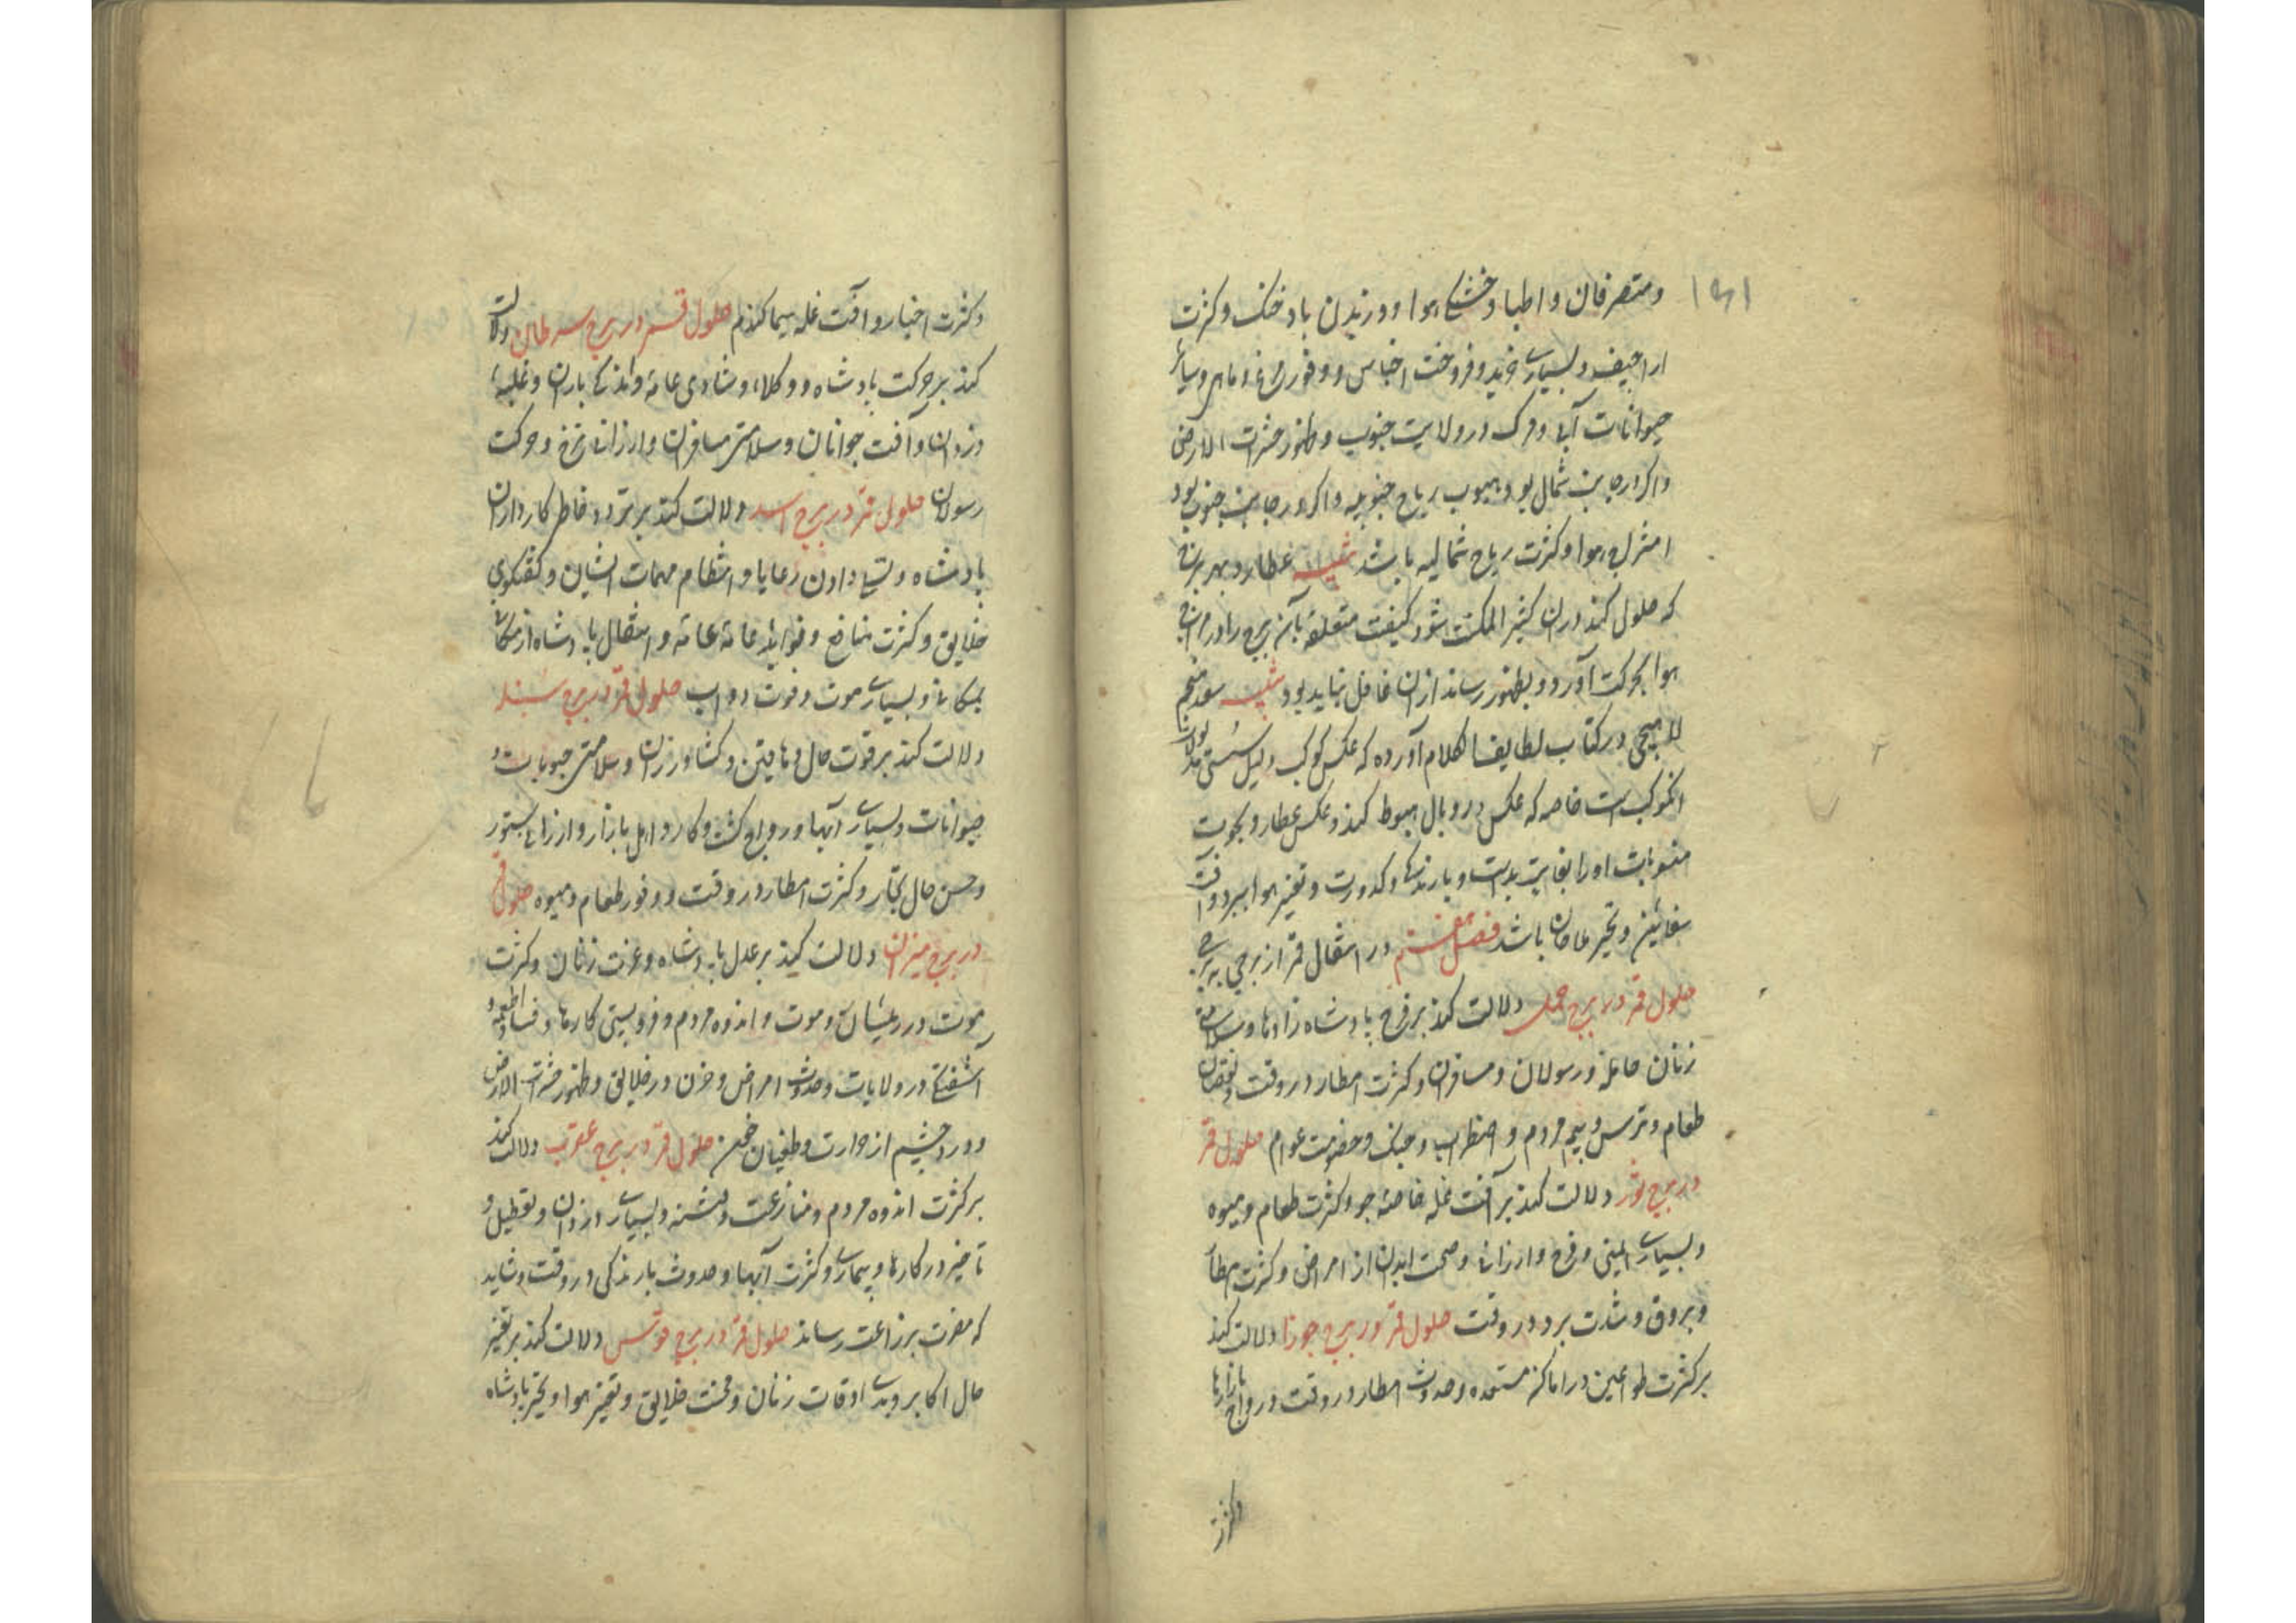 ومتصرفان و اطبا و خشکی هوا و وزیدن باد خنک و کثرت
اراجیف و بسیاری خرید و فروخت اجناس و وفور مرغ و ماهی و سایر
حیوانات آبی و مرک در ولایت جنوب و ظهور حشرات الارض
و اکر در جانب شمال بود هبوب ریاح جنوبیه و اکر در جانب جنوب بود
هوا و کثرت ریاح شمالیه باشد عطارد بهر برجی
که حلول کند در ان کثیر المکث شود کیفیت متعلقه بآن برج را در
هوا بحرکت آورد و بظهور رساند ازان غافل نباید بود سعد منجم
لاهیجی در کتاب لطایف الکلام آورده که عکس کوکب دلیل سستی
انکوکب است خاصه که عکس در وبال هبوط کند و عکس عطارد بحوت
منسوبات او را بغایت بد است و بارندکی و کدورت و تغیر هوا ببرد و آفت
سفاین و تحیر ملاحان باشد فصل هفتم در انتقال قمر از برجی به برجی
حلول قمر در برج حمل دلالت کند بر فرح پادشاه زادها و سلامتی
زنان حامله و رسولان و مسافران و کثرت امطار در وقت و نقصان
طعام و ترس و بیم مردم و اضطراب و جنک و خصومت عوام حلول قمر
در برج ثور دلالت کند بر آفت غله خاصه جو و کثرت طعام و میوه
و بسیاری ایمنی و فرح و ارزانی و صحت ابدان از امراض و کثرت امطار
و بروق و شدت برد در وقت حلول قمر در برج جوزا دلالت کند
بر کثرت طواعین در اماکن مستعده و حدوث امطار در وقت و رواج بازارها
وکثرت
وکثرت اخبار و آفت غله سیما کندم حلول قمر در برج سرطان دلالت
کند بر حرکت پادشاه و وکلاء و شادی عامه و اندکی باران و غلبهٔ
دزدان و آفت جوانان و سلامتی مسافران و ارزانی نرخ و حرکت
رسولان حلول قمر در برج اسد دلالت کند بر تردد خاطر کارداران
پادشاه و تسلی دادن رعایا و انتظام مهمات ایشان و کفتکوی
خلایق و کثرت منافع و فواید عامه و انتقال پادشاه از مکانی
بمکانی و بسیاری موت و فوت دواب حلول قمر در برج سنبله
دلالت کند بر قوت حال دهاقین و کشاورزان و سلامتی حبوبات و
حیوانات و بسیاری آبها و رواج کشت و کار و اهل بازار و ارزانی ستور
و حسن حال تجار و کثرت امطار در وقت و وفور طعام و میوه حلول قمر
در برج میزان دلالت کند بر عدل پادشاه و عزت زنان و کثرت
موت درویشان و موت و اندوه مردم و فروبستی کارها و فساد اطعمه و
آشفتکی در ولایات و حدوث امراض و حزن در خلایق و ظهور حشرات الارض
و درد چشم از حرارت و طغیان حلول قمر در برج عقرب دلالت کند
بر کثرت اندوه مردم و منازعت و فتنه و بسیاری دزدان و تعطیل و
تاخیر در کارها و بیماری و کثرت آبها و حدوث بارندکی در وقت و شاید
که مضرت بزراعت رساند حلول قمر در برج قوس دلالت کند بر تغیر
حال اکابر و بدی اوقات زنان و محنت خلایق و تغیر هوا و تحیر پادشاه